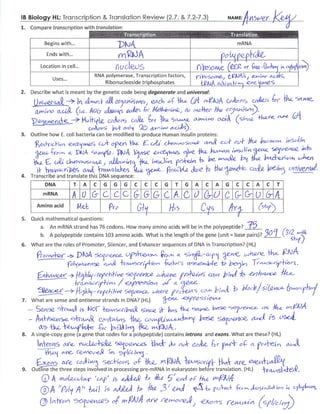 IB Biology HL: Transcription & Translation Review (2.7. & 7.2-7.3) NAME: Answer Key
1. Compare transcription with translation:
Transcription Translation
Begins with… DNA mRNA
Ends with… mRNA polypeptide
Location in cell… nucleus ribosome (RER or free-floating in cytoplasm)
Uses… RNA polymerase, Transcription factors, Ribonucleoside triphosphates ribosome, tRNAs, amino acids, tRNA activating enzymes
2. Describe what is meant by the genetic code being degenerate and universal:
Universal → In almost all organisms, each of the 64 mRNA codons codes for the same
amino acid (i.e. AUG always codes for Methionine, no matter the organism).
Degenerate → Multiple codons code for the same amino acid (since there are 64
codons but only 20 amino acids).
3. Outline how E. coli bacteria can be modified to produce Human insulin proteins:
Restriction enzymes cut open the E. coli chromosome and cut out the human insulin
gene from a DNA sample. DNA ligase enzymes glue the human insulin gene sequence into
the E. coli chromosome, allowing the insulin protein to be made by the bacterium when
it transcribes and translates the gene. Possible due to the genetic code being universal.
4. Transcribe and translate this DNA sequence:
DNA T A C G G G C C C G T G A C A G C C A C T
mRNA A U G C C C G G G C A C U G U C G G U G A
Amino acid Met Pro Gly His Cys Arg (stop)
5. Quick mathematical questions:
a. An mRNA strand has 76 codons. How many amino acids will be in the polypeptide? 75
b. A polypeptide contains 103 amino acids. What is the length of the gene (unit = base pairs)?
6. What are the roles of Promoter, Silencer, and Enhancer sequences of DNA in Transcription? (HL)
Promoter → DNA sequence upstream from a single-copy gene where the RNA
Polymerase and transcription factors assemble to begin Transcription.
Enhancer → Highly-repetitive sequence where proteins can bind to enhance the
transcription / expression of a gene.
Silencer → Highly-repetitive sequence where proteins can bind to block/silence
gene expression
7. What are sense and antisense strands in DNA? (HL)
- Sense strand is NOT transcribed since it has the same base sequence as the mRNA
- Antisense strand contains the complementary base sequence and is used
as the template for building the mRNA.
8. A single-copy gene (a gene that codes for a polypeptide) contains introns and exons. What are these? (HL)
Introns are nucleotide sequences that do not code for part of a protein, and
they are removed in splicing.
Exons are coding sections of the mRNA transcript that are eventually
translated.
9. Outline the three steps involved in processing pre-mRNA in eukaryotes before translation. (HL)
① A molecular 'cap' is added to the 5' end of the mRNA
② A "Poly A" tail is added to the 3' end to protect from degradation in cytoplasm
③ Intron sequences of mRNA are removed, exons remain (splicing)